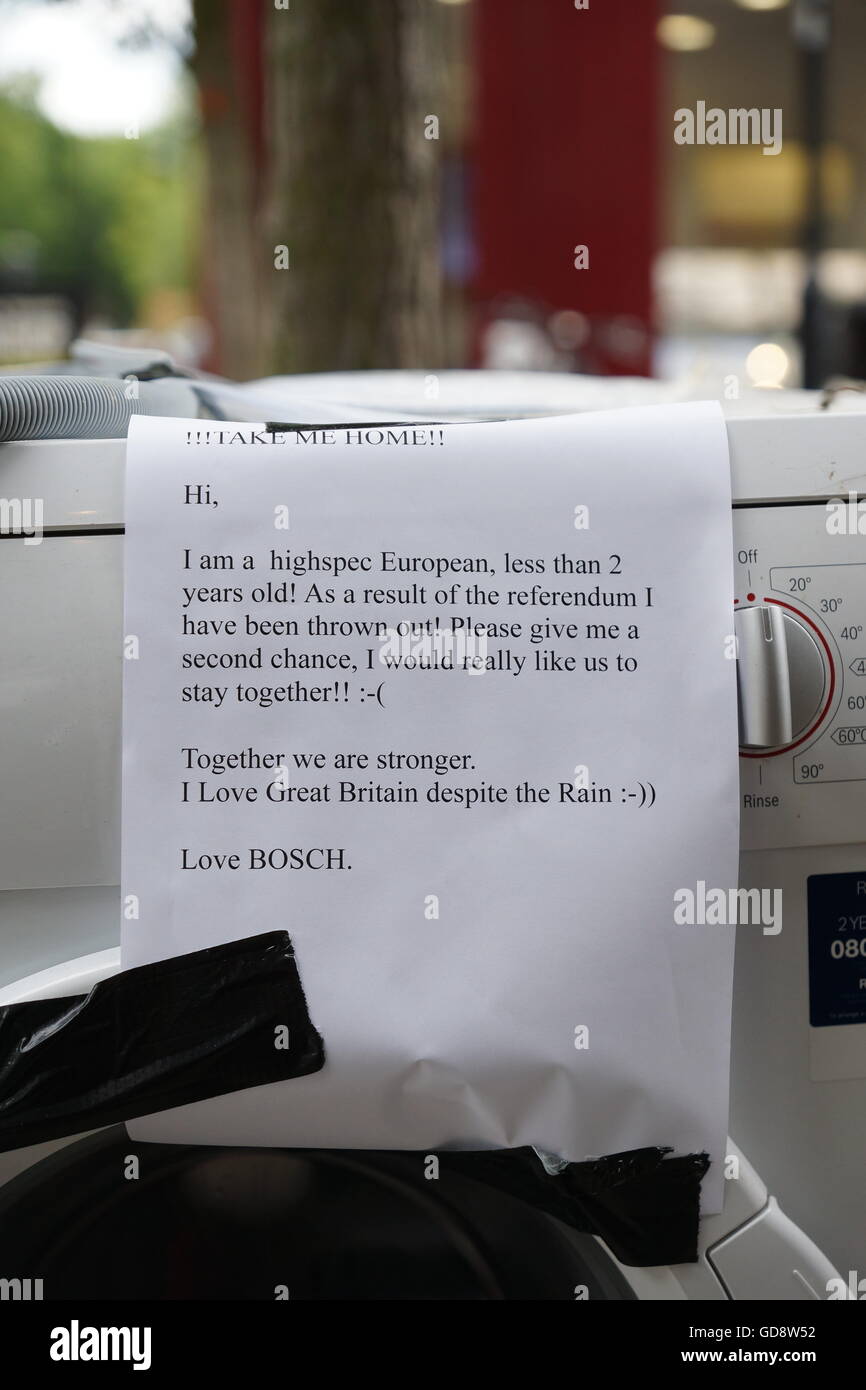 !!!TAKE ME HOME!!
Hi,
I am a  highspec European, less than 2
years old! As a result of the referendum I
have been thrown out! Please give me a
second chance, I would really like us to
stay together!! :-(
Together we are stronger.
I Love Great Britain despite the Rain :-))
Love BOSCH.
Off
20°
30°
40°
60°
90°
Rinse
2 YE
080
alamy
alamy
alamy
alamy
a
a
a
a
a
a
a
a
a
a
alamy stock photo
GD8W52
www.alamy.com